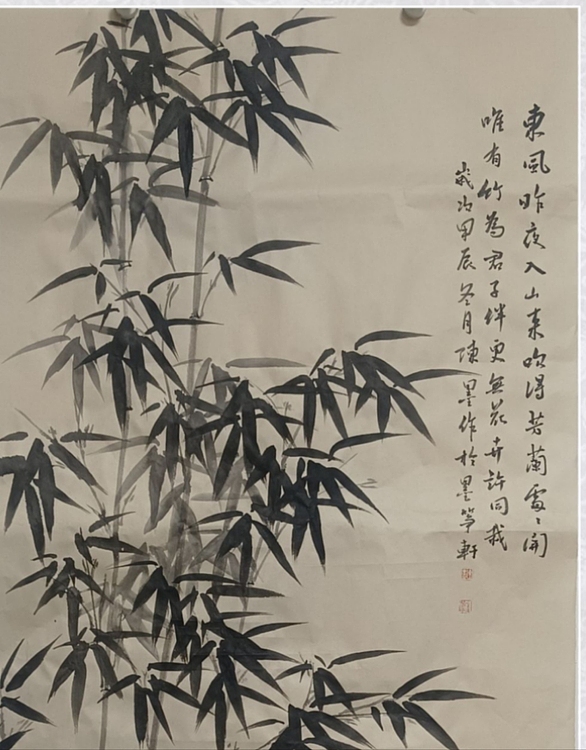 東風昨夜入山来吹得芳蘭處〻開
唯有竹為君子伴更無花卉許同栽
歲次甲辰冬月陳墨作於墨箏軒